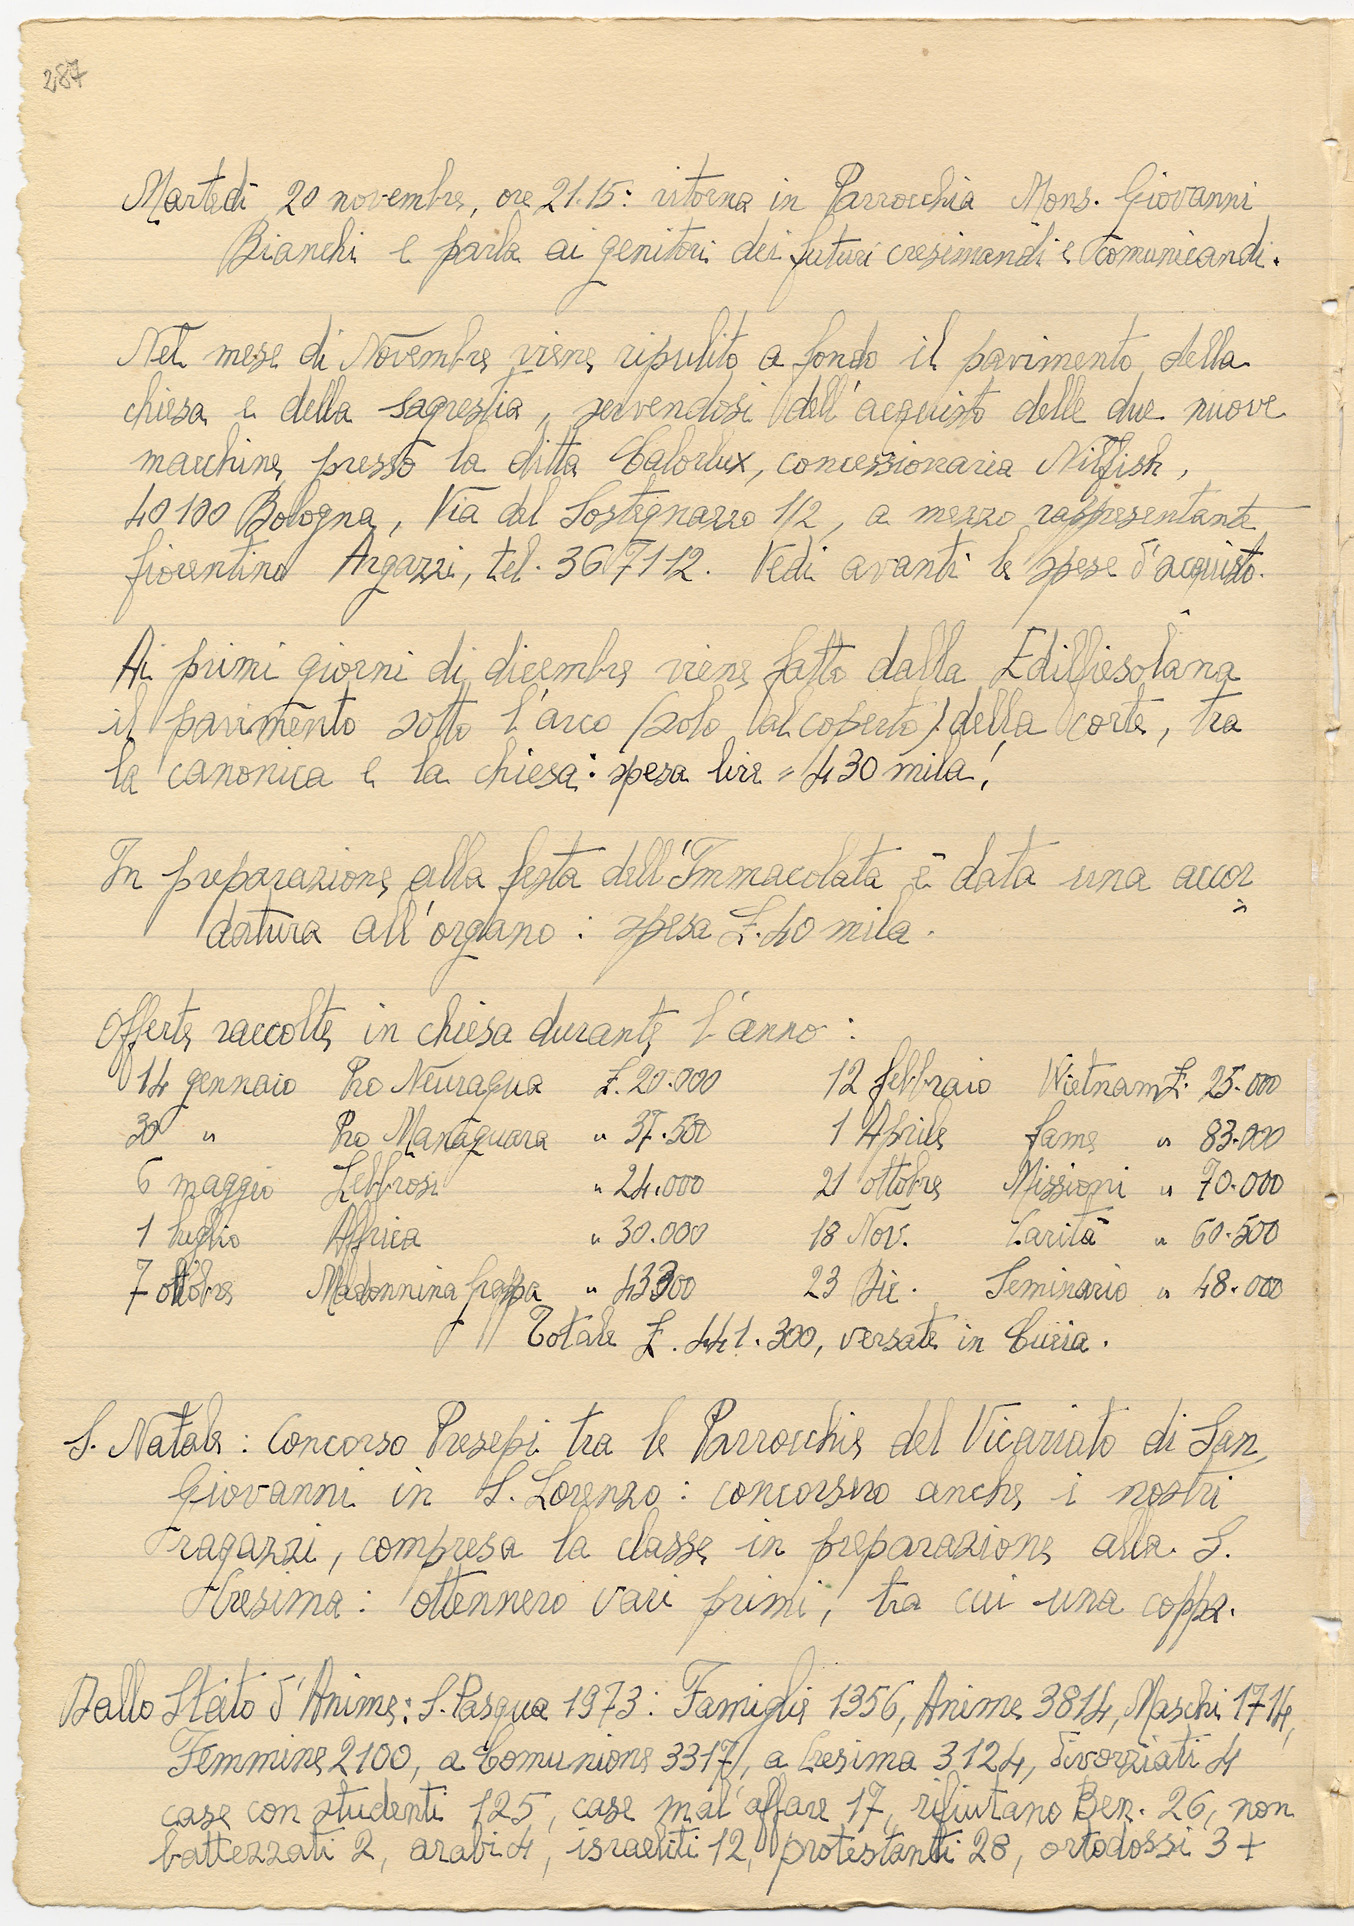 287
Martedì 20 novembre, ore 21.15: ritorna in Parrocchia Mons. Giovanni
Bianchi e parla ai genitori dei futuri cresimandi e comunicandi.
Nel mese di Novembre viene ripulito a fondo il pavimento della
chiesa e della sagrestia, servendosi dell'acquisto delle due nuove
macchine, presso la ditta Calorlux, concessionaria Nilfish,
40100 Bologna, Via del Sostegnazzo 1/2, a mezzo rappresentante
fiorentino Argazzi, tel. 367112. Vedi avanti le spese d'acquisto.
Ai primi giorni di dicembre viene fatto dalla Edilfiesolana
il pavimento sotto l'arco (solo al coperto) della corte, tra
la canonica e la chiesa: spesa lire = 430 mila!
In preparazione alla festa dell'Immacolata è data una accor
datura all'organo: spesa £. 40 mila.
Offerte raccolte in chiesa durante l'anno:
14 gennaio Pro Neuragua £. 20.000 12 febbraio Vietnam £. 25.000
30 " Pro Managuara " 37.500 1 Aprile fame " 83.000
6 maggio Lebbrosi " 24.000 21 ottobre Missioni " 70.000
1 luglio Africa " 30.000 18 Nov. Carità " 60.500
7 ottobre Madonnina Grappa " 43300 23 Dic. Seminario " 48.000
Totale £. 441.300, versate in Curia.
S. Natale: Concorso Presepi tra le Parrocchie del Vicariato di San
Giovanni in S. Lorenzo: concorsero anche i nostri
ragazzi, compresa la classe in preparazione alla S.
Cresima: ottennero vari primi, tra cui una coppa.
Dallo Stato d'Anime: S. Pasqua 1973: Famiglie 1356, Anime 3814, Maschi 1714,
Femmine 2100, a Comunione 3317, a Cresima 3124, divorziati 4
case con studenti 125, case mal'affare 17, rifiutano Ben. 26, non
battezzati 2, arabi 4, israeliti 12, protestanti 28, ortodossi 3 +